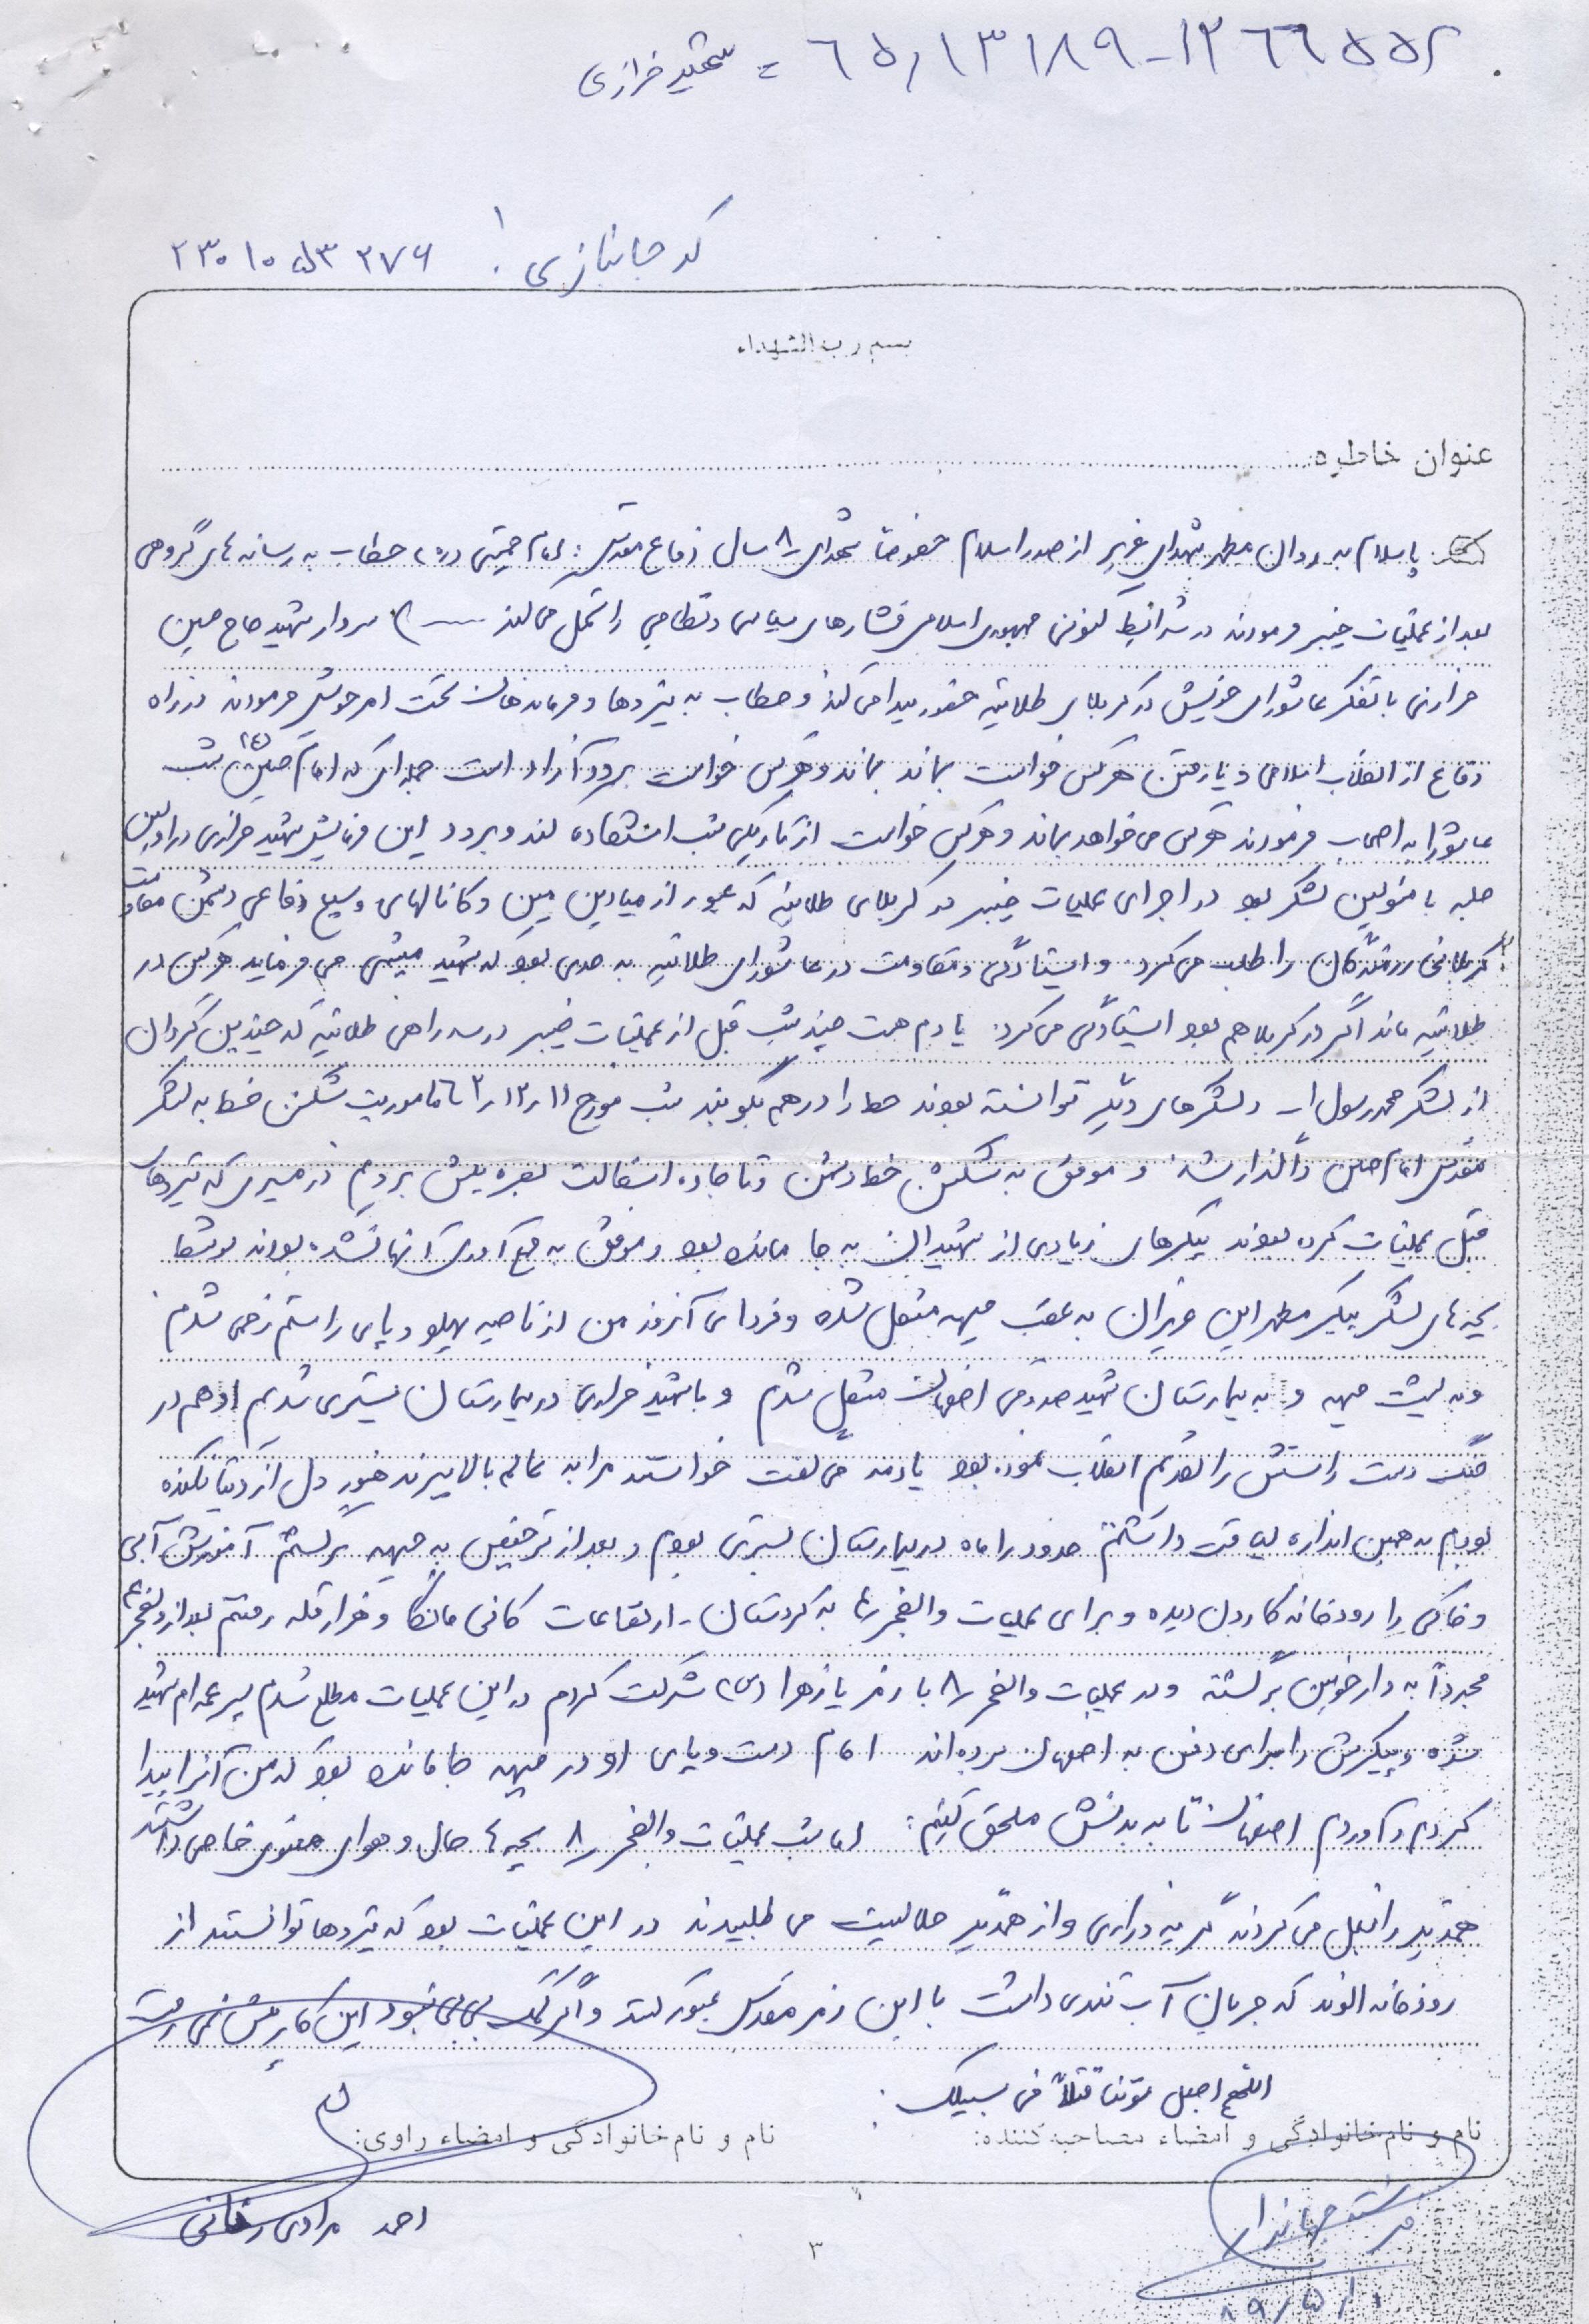 ۶۵۱۳۱۸۹-۱۲۶۶۵۵۲ = شهید خرازی
کد جانبازی: ۲۳۰۱۰۵۳۲۷۶
بسم رب الشهداء
عنوان خاطره:
با سلام به روان مطهر شهدای عزیز از صدر اسلام خصوصاً شهدای ۸ سال دفاع مقدس: امام خمینی (ره) خطاب به رسانه های گروهی
بعد از عملیات خیبر فرمودند در شرائط کنونی جمهوری اسلامی فشارهای سیاسی و نظامی را تحمل می کند سردار شهید حاج حسین
خرازی با تفکر عاشورای خویش در کربلای طلائیه حضور پیدا می کند و خطاب به نیروها و فرماندهان تحت امر خویش فرمودند در راه
دفاع از انقلاب اسلامی و یا رفتن هر کس خواست بماند بماند و هر کس خواست برود آزاد است جمله ای که امام حسین (ع) شب
عاشورا به اصحاب فرمودند هر کس می خواهد بماند و هر کس خواست از تاریکی شب استفاده کند و برود این فرمایش شهید خرازی در اولین
جلسه با مسئولین لشکر بود در اجرای عملیات خیبر در کربلای طلائیه که عبور از میادین مین و کانالهای وسیع دفاعی دشمن مقاومت
کربلائی رزمندگان را طلب می کرد و ایستادگی و مقاومت در عاشورای طلائیه به حدی بود که شهید میثمی می فرماید هر کس در
طلائیه ماند اگر در کربلا هم بود ایستادگی می کرد. یادم هست چند شب قبل از عملیات خیبر در سه راهی طلائیه که چندین گردان
از لشکر محمد رسول ا... و لشکرهای دیگر توانسته بودند خط را در هم بکوبند شب مورخ ۱۱ ر ۱۲ ر ۶۲ ماموریت شکستن خط به لشکر
مقدس امام حسین واگذار شد و موفق به شکستن خط دشمن و تا جاده اسفالت بصره پیش بردیم در مسیری که نیروهای
قبل عملیات کرده بودند پیکرهای زیادی از شهیدان به جا مانده بود و موفق به جمع آوری آنها نشده بودند توسط
بچه های لشکر پیکر مطهر این عزیزان به عقب جبهه منتقل شده و فردای آنروز من از ناحیه پهلو و پای راستم زخمی شدم
و به پشت جبهه و به بیمارستان شهید صدوقی اصفهان منتقل شدم و با شهید خرازی در بیمارستان بستری شدیم او هم در
جنگ دست راستش را تقدیم انقلاب نموده بود یادمه می گفت خواستند مرا به عالم بالا ببرند هنوز دل از دنیا نکنده
بودیم به همین اندازه لیاقت داشتم حدود ۱ ماه در بیمارستان بستری بودم و بعد از ترخیص به جبهه برگشتم آموزش آبی
و خاکی را رودخانه کارون دیده و برای عملیات والفجر ۴ به کردستان - ارتفاعات کانی مانگا و هزار قله رفتم بعد از والفجر ۴
مجدداً به دارخوین برگشته و در عملیات والفجر ۸ با رمز یا زهرا (س) شرکت کردم در این عملیات مطلع شدم پسر عمه ام شهید
شده و پیکرش را برای دفن به اصفهان برده اند اما دست و پای او در جبهه جا مانده بود که من آنرا پیدا
کردم و آوردم اصفهان تا به بدنش ملحق کنیم: اما شب عملیات والفجر ۸ بچه ها حال و هوای معنوی خاصی داشتند
همدیگر را بغل می کردند گریه و زاری و از همدیگر حلالیت می طلبیدند در این عملیات بود که نیروها توانستند از
رودخانه اروند که جریان آب تندی داشت با این رمز مقدس عبور کنند و اگر کمک بی بی نبود این کار پیش نمی رفت
اللهم اجعل موتنا قتلاً فی سبیلک
نام و نام خانوادگی و امضاء مصاحبه کننده:
نام و نام خانوادگی و امضاء راوی:
احمد مرادی
۸۹/۵/۱
۳